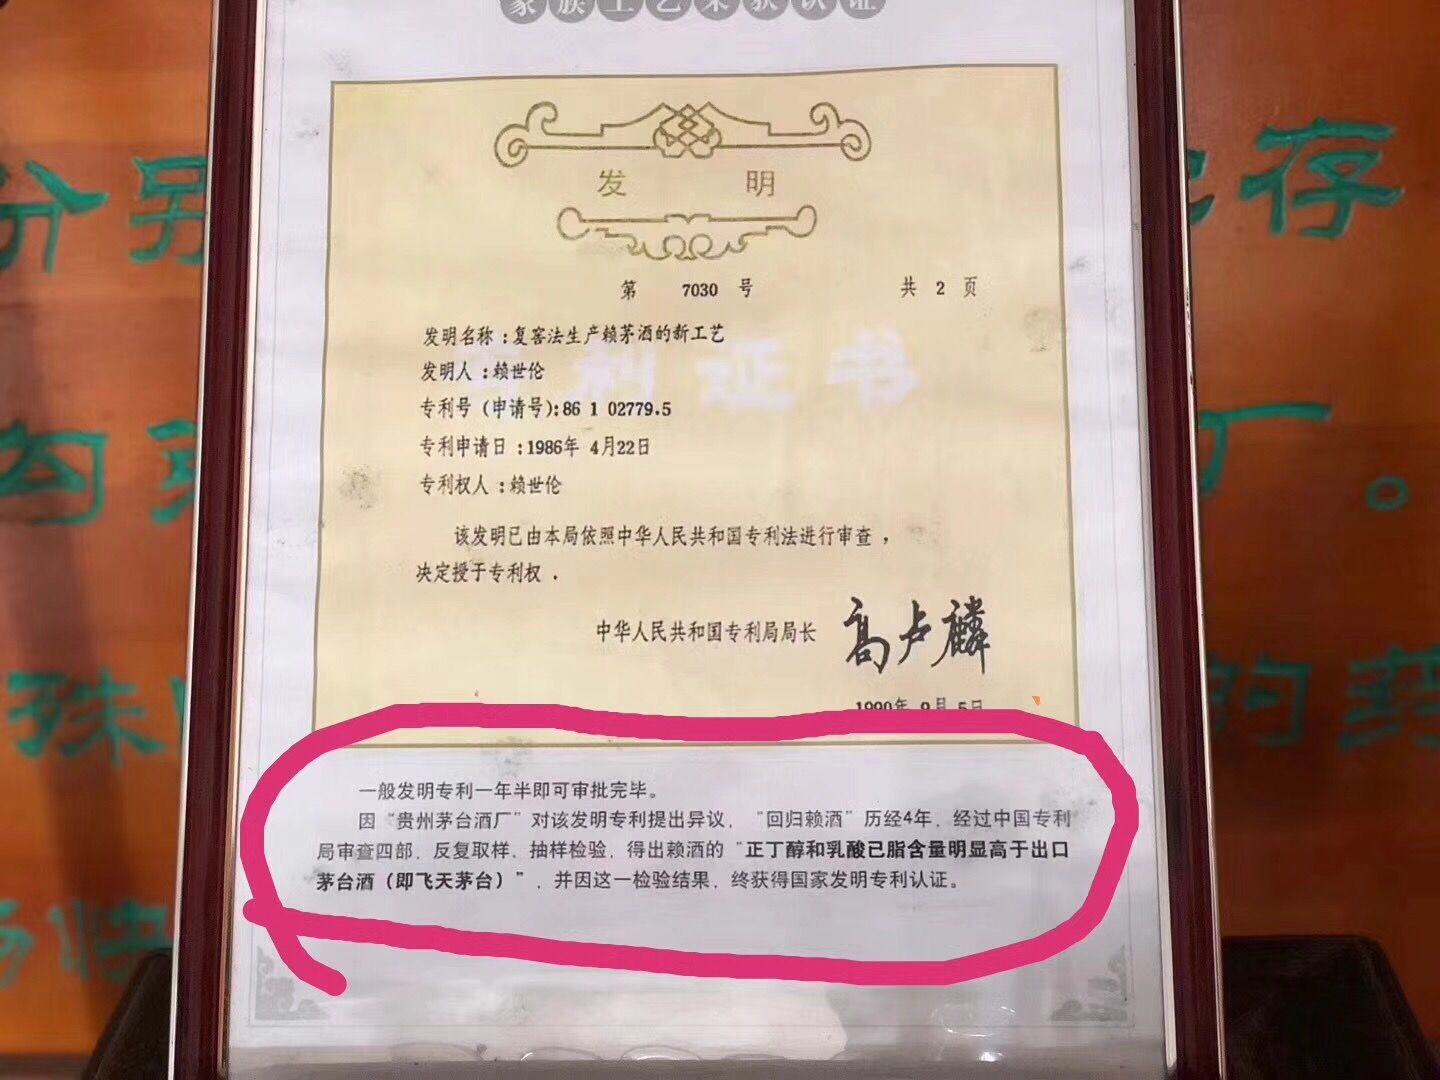 家族工艺荣获认证
发 明
第 7030 号 共 2 页
发明名称：复窖法生产赖茅酒的新工艺
发明人：赖世伦
专利证书
专利号（申请号）：86 1 02779.5
专利申请日：1986年 4月22日
专利权人：赖世伦
该发明已由本局依照中华人民共和国专利法进行审查，
决定授于专利权．
中华人民共和国专利局局长 高卢麟
1990年 9月 5日
一般发明专利一年半即可审批完毕。
因“贵州茅台酒厂”对该发明专利提出异议，“回归赖酒”历经4年，经过中国专利
局审查四部，反复取样，抽样检验，得出赖酒的“正丁醇和乳酸已脂含量明显高于出口
茅台酒（即飞天茅台）”，并因这一检验结果，终获得国家发明专利认证。
份另 存
丁。
殊 的药